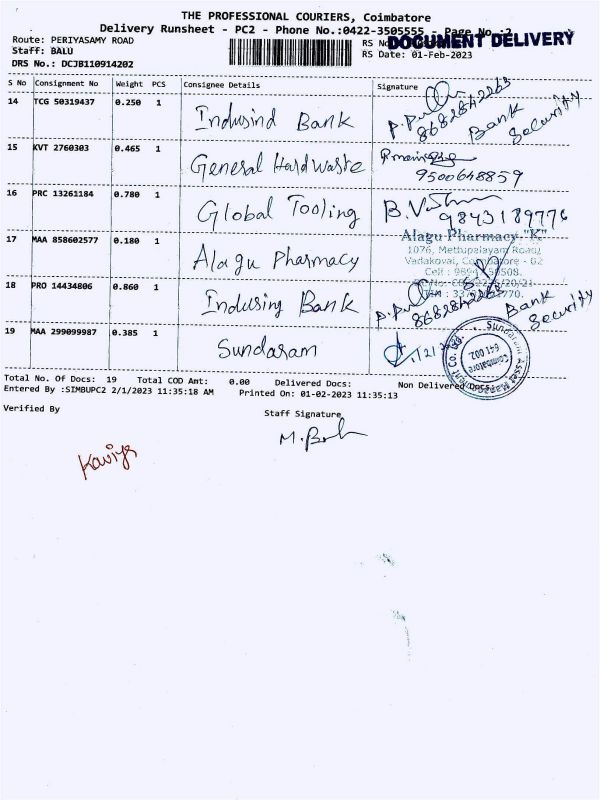 THE PROFESSIONAL COURIERS, Coimbatore
Delivery Runsheet - PC2 - Phone No.:0422-3505555 - Page No.:2
DOCUMENT DELIVERY
Route: PERIYASAMY ROAD
RS No
Staff: BALU
RS Date: 01-Feb-2023
DRS No.: DCJB110914202
S No Consignment No Weight PCS Consignee Details Signature
14 TCG 50319437 0.250 1 Indusind Bank
8682842263 Bank Security
15 KVT 2760303 0.465 1 General Hardwaste
9500648859
16 PRC 13261184 0.780 1 Global Tooling
9843189776
17 MAA 858602577 0.180 1 Alagu Pharmacy
Alagu Pharmacy "K"
1076, Mettupalayam Road,
Vadakovai, Coimbatore - 02
18 PRO 14434806 0.860 1 Indusing Bank
8682842263 Bank Security
19 MAA 299099987 0.385 1 Sundaram
Sundaram Asset Management Co. Ltd.
Coimbatore
641 002
Total No. Of Docs: 19 Total COD Amt: 0.00 Delivered Docs: Non Delivered Docs:
Entered By :SIMBUPC2 2/1/2023 11:35:18 AM Printed On: 01-02-2023 11:35:13
Verified By
Staff Signature
Kaviya